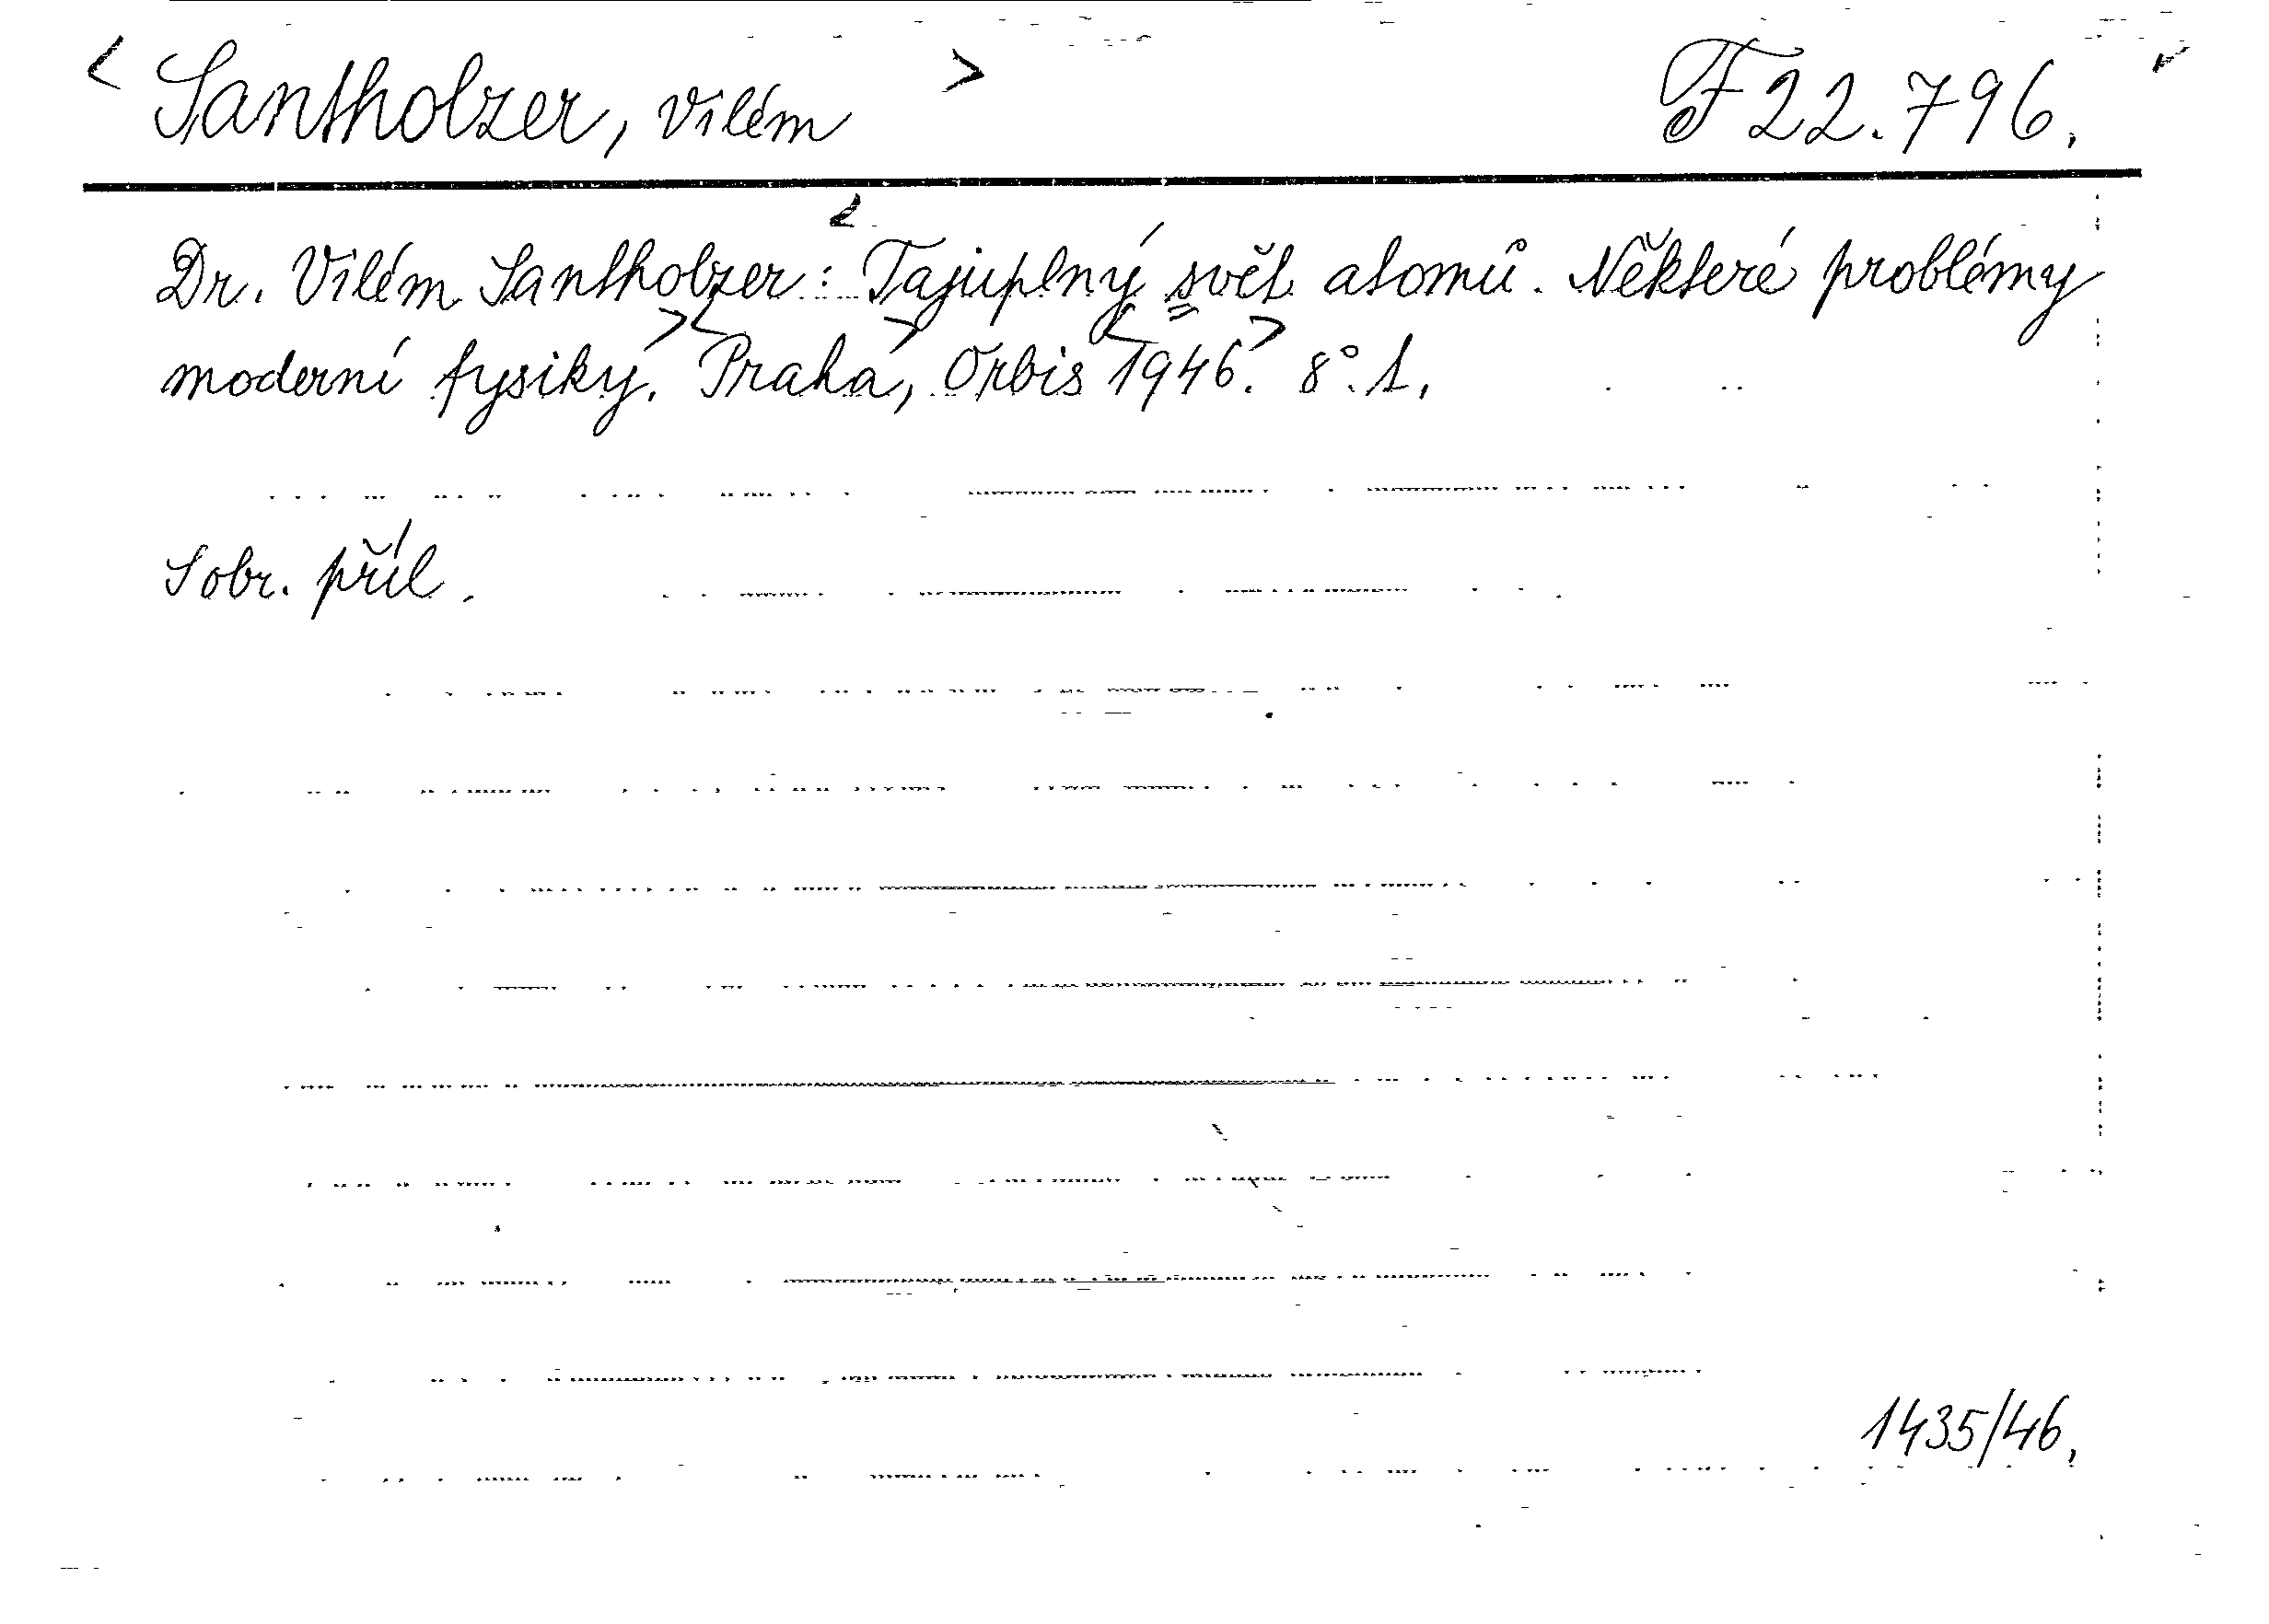 < Santholzer, Vilém > F 22.796.
Dr. Vilém Santholzer: < Tajuplný svět atomů. Některé problémy
moderní fysiky. > < Praha, > Orbis < 1946. > 8°. 1.
S obr. příl.
1435/46.